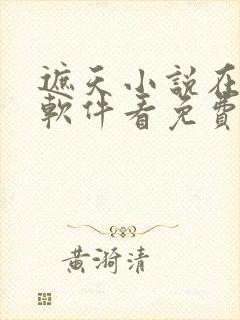 遮天小說在
軟件看免費
黃漪清